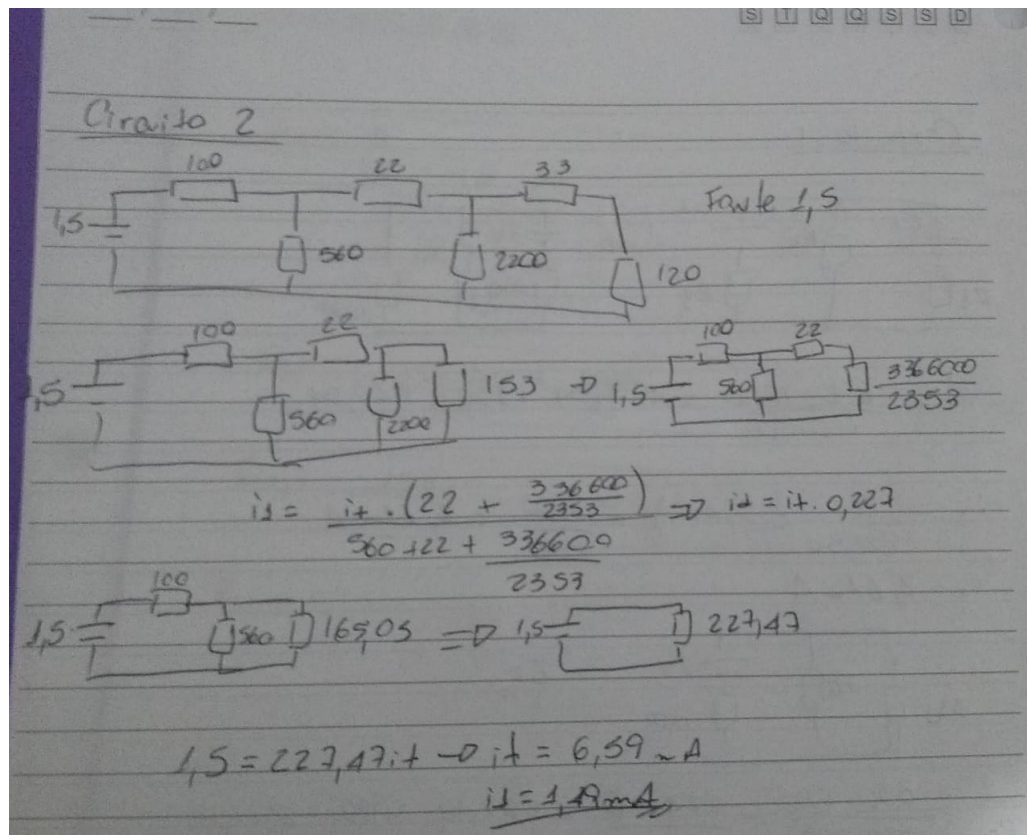 S T Q Q S S D
Circuito 2
100 22 33
1,5 560 2200 120 Fonte 1,5
100 22 100 22
1,5 560 2200 153 → 1,5 560 3366000/2353
i1 = it . (22 + 336600/2353) / (560 + 22 + 336600/2353) ⇒ i1 = it . 0,227
100
1,5 560 165,05 ⇒ 1,5 227,47
1,5 = 227,47it → it = 6,59 mA
i1 = 1,49mA